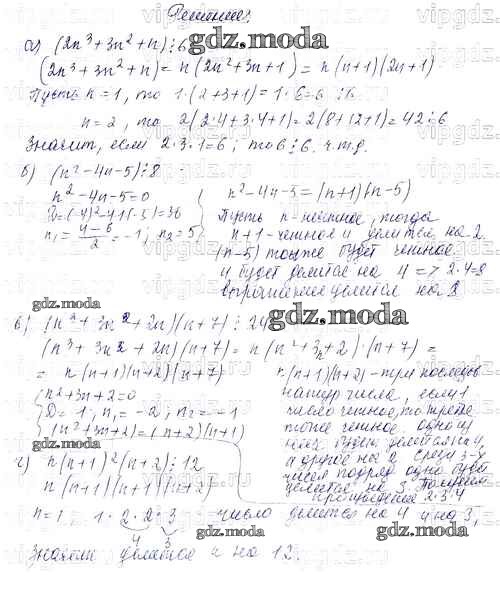 Решение:
а) (2n³+3n²+n)⋮6
(2n³+3n²+n) = n(2n²+3n+1) = n(n+1)(2n+1)
Пусть n=1, то 1·(2+3+1)=1·6=6 ⋮6
n=2, то 2(2·4+3·4+1)=2(8+12+1)=42⋮6
Значит, если 2·3·1=6; то 6⋮6. ч.т.д.
б) (n²-4n-5)⋮8
n²-4n-5=0
D=(-4)²-4·1(-5)=36
n₁=(4-6)/2=-1; n₂=5
n²-4n-5=(n+1)(n-5)
Пусть n-нечетное, тогда
n+1-четное и делится на 2
(n-5) тоже будет четное
и будет делится на 4 => 2·4=8
выражение делится на 8
в) (n³+3n²+2n)(n+7)⋮24
(n³+3n²+2n)(n+7) = n(n²+3n+2)·(n+7) =
= n(n+1)(n+2)(n+7)
n²+3n+2=0
D=1; n₁=-2; n₂=-1
(n²+3n+2)=(n+2)(n+1)
n(n+1)(n+2)-три послед
натур числа, если 1
число четное, то третье
тоже четное, одно из
них будет делится на 4
а другое на 2 среди 3-х
чисел подряд одно будет
делится на 3.
произведение 2·3·4
г) n(n+1)²(n+2)⋮12
n(n+1)(n+1)(n+2)
n=1 1·2·2·3 число делится на 4 и на 3,
4 3
Значит делится и на 12
gdz.moda
gdz.moda
gdz.moda
gdz.moda
gdz.moda
gdz.moda
gdz.moda